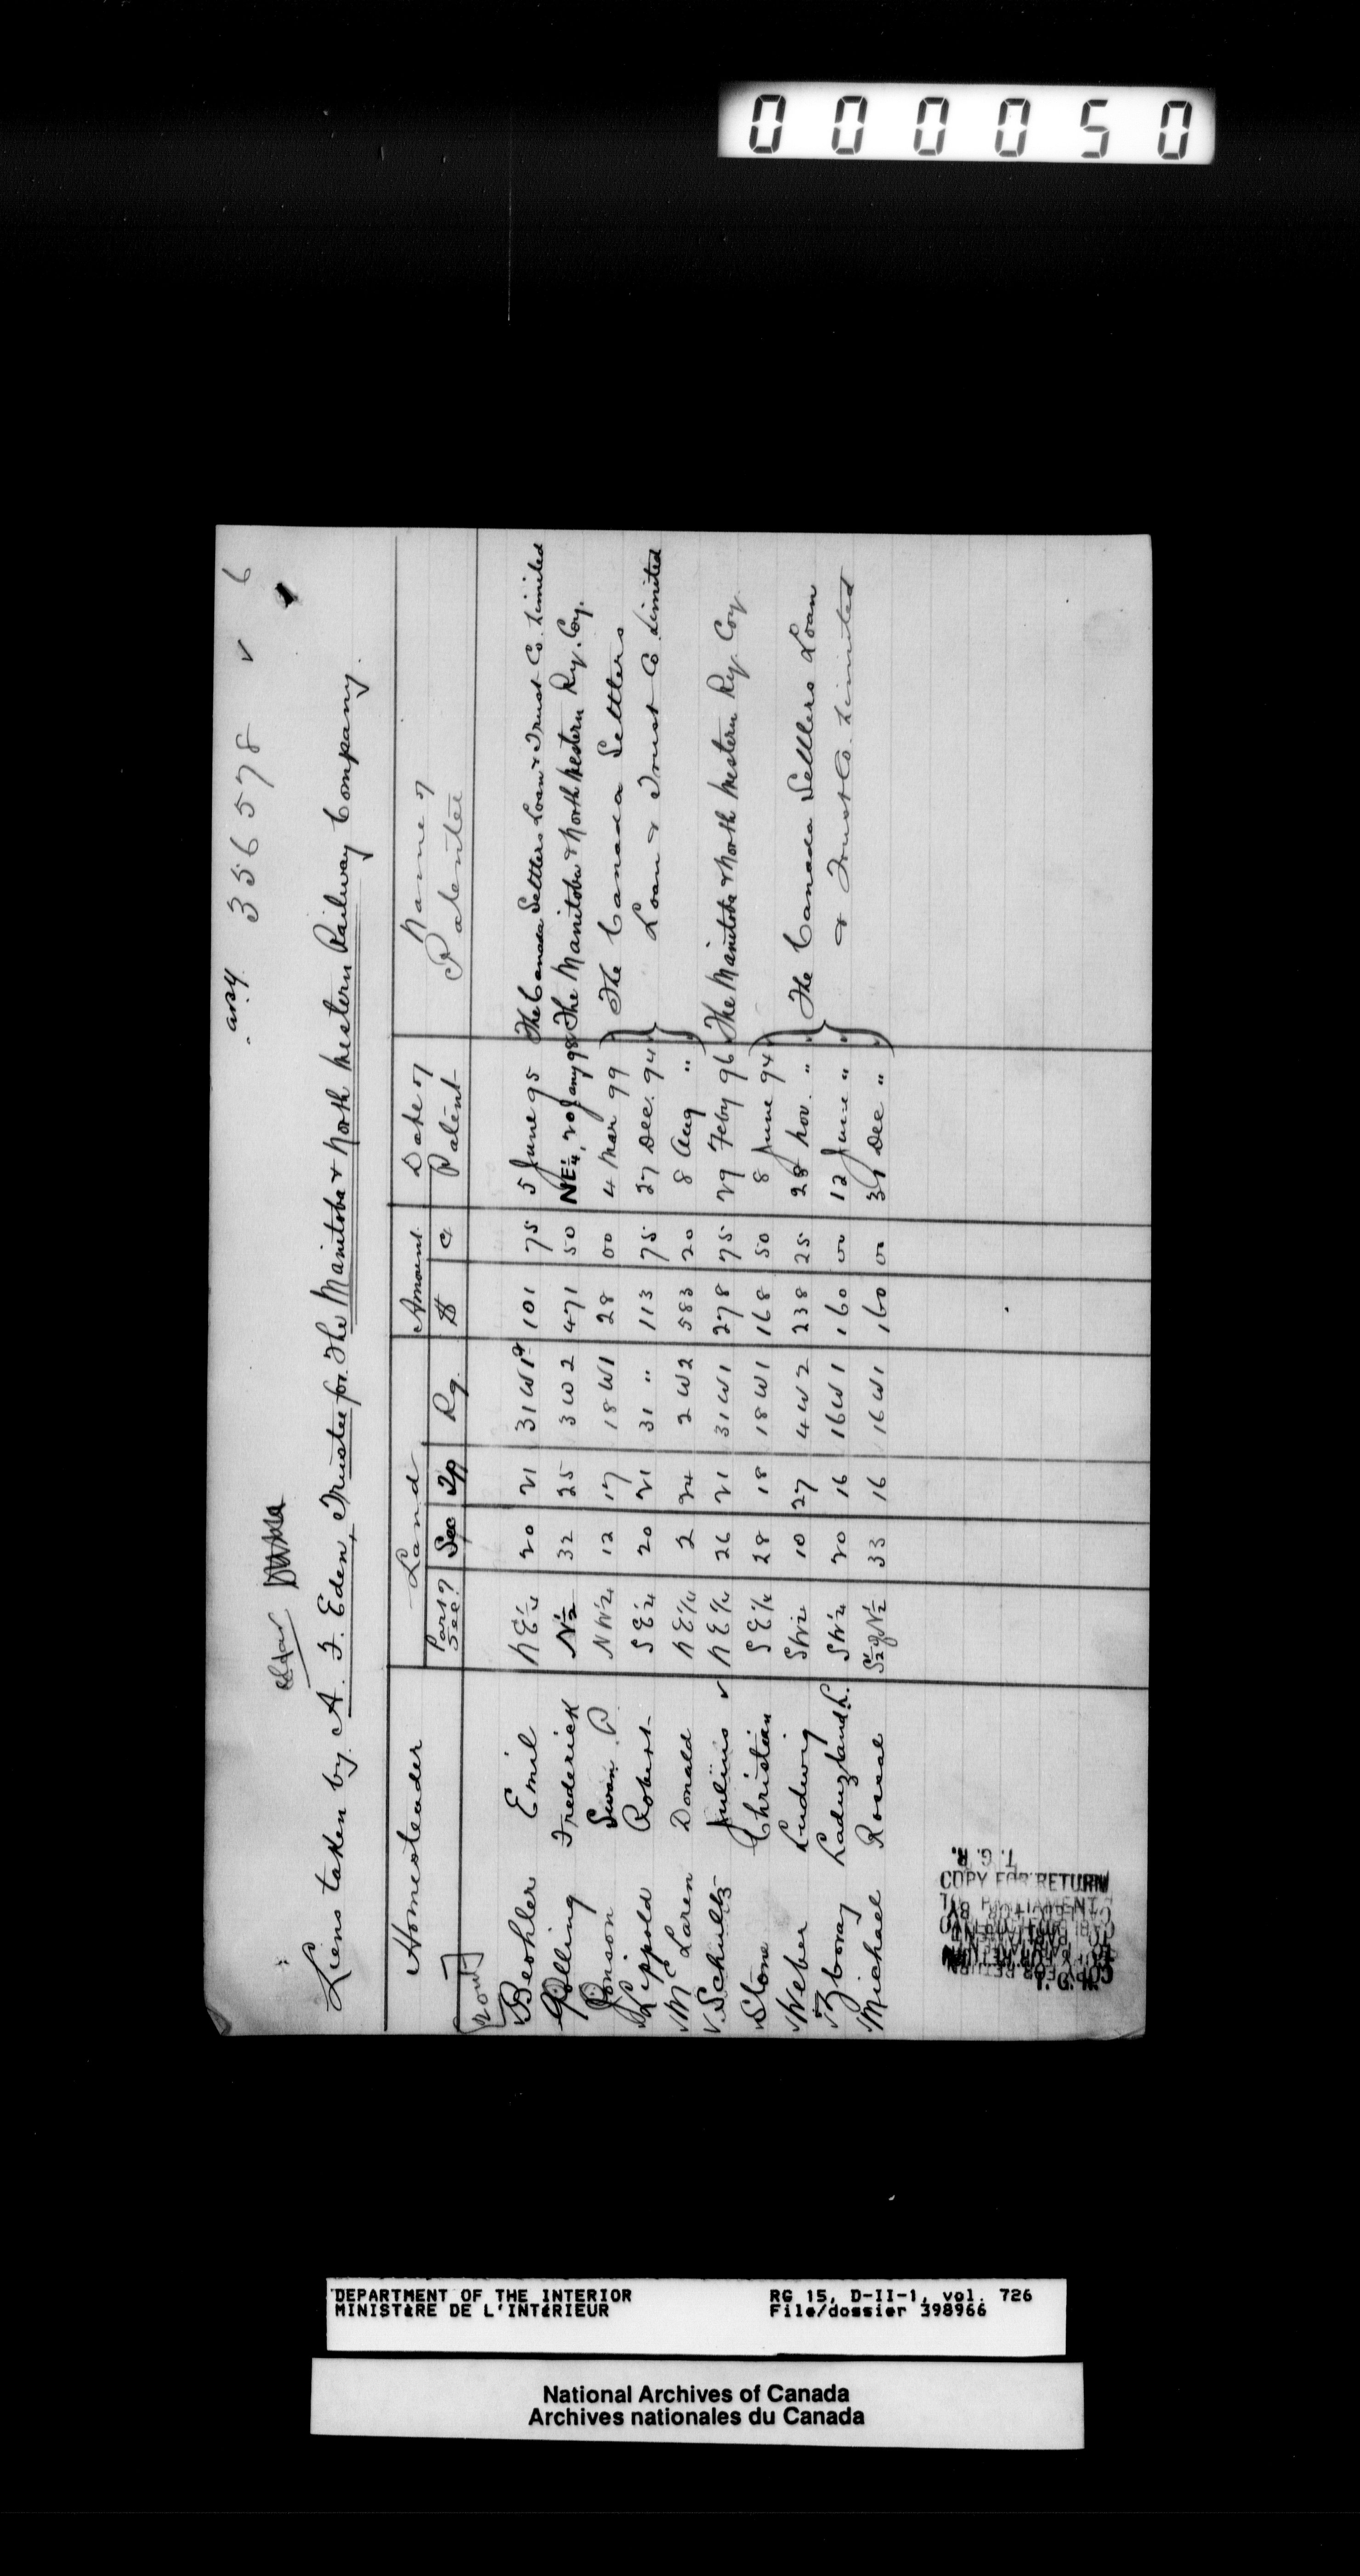 000050
any 356578 v 6
Liens taken by A. F. Eden, Trustee for The Manitoba & North Western Railway Company.
Homesteader Land Amount Date of Patent Name of Patentee
Part of Sec. Sec Tp Rg. $ c
Beohler Emil N E 1/4 20 21 31 W 1st 101 75 5 June 95 The Canada Settlers Loan & Trust Co. Limited
Golling Frederick N 1/2 32 25 3 W 2 471 50 NE 1/4, 20 Jany 98 The Manitoba & North Western Ry. Coy.
Jonson Swan P N W 1/4 12 17 18 W 1 28 00 4 Mar 99 The Canada Settlers
Lippold Robert S E 1/4 20 21 31 " 113 75 27 Dec. 94 Loan & Trust Co Limited
McLaren Donald N E 1/4 2 24 2 W 2 583 20 8 Aug "
V. Schultz Julius v N E 1/4 26 21 31 W 1 278 75 29 Feby 96 The Manitoba & North Western Ry. Coy.
Stone Christian S E 1/4 28 18 18 W 1 168 50 8 June 94
Weber Ludwig S W 1/4 10 27 4 W 2 238 25 28 Nov. " The Canada Settlers Loan
Zboray S W 1/4 20 16 16 W 1 160 00 12 June " & Trust Co. Limited
Michael Rossal S 1/2 of N 1/2 33 16 16 W 1 160 00 31 Dec "
T. G. R.
COPY FOR RETURN
DEPARTMENT OF THE INTERIOR RG 15, D-II-1, vol. 726
MINISTÈRE DE L'INTÉRIEUR File/dossier 398966
National Archives of Canada
Archives nationales du Canada